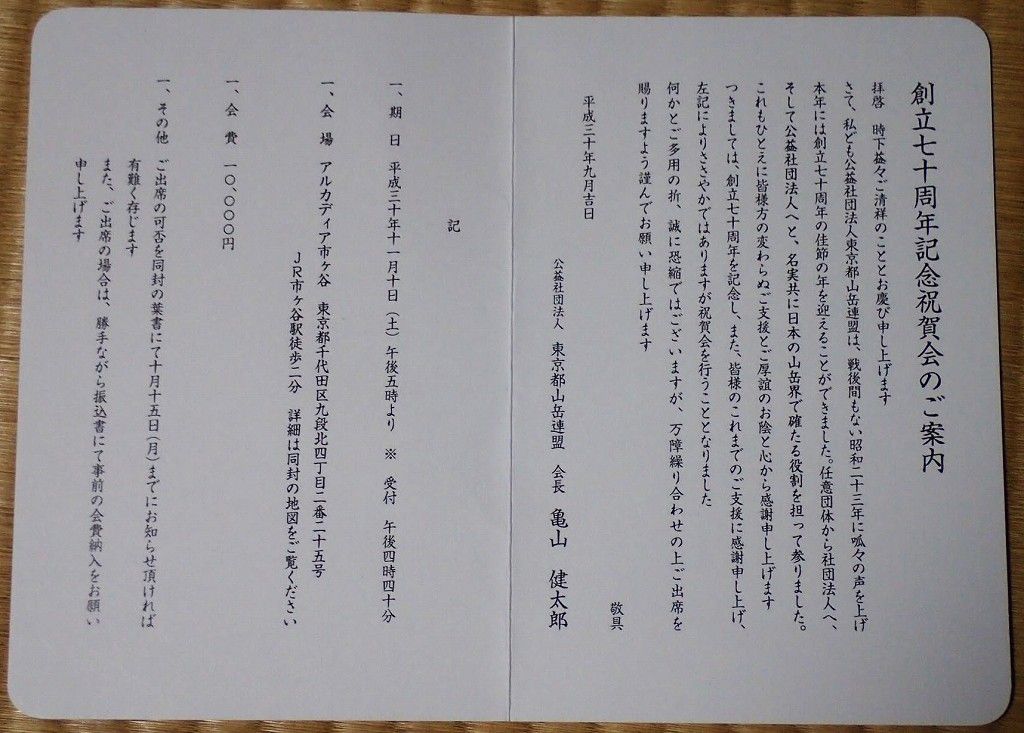 創立七十周年記念祝賀会のご案内
拝啓　時下益々ご清祥のこととお慶び申し上げます
さて、私ども公益社団法人東京都山岳連盟は、戦後間もない昭和二十三年に呱々の声を上げ
本年には創立七十周年の佳節の年を迎えることができました。任意団体から社団法人へ、
そして公益社団法人へと、名実共に日本の山岳界で確たる役割を担って参りました。
これもひとえに皆様方の変わらぬご支援とご厚誼のお陰と心から感謝申し上げます
つきましては、創立七十周年を記念し、また、皆様のこれまでのご支援に感謝申し上げ、
左記によりささやかではありますが祝賀会を行うこととなりました
何かとご多用の折、誠に恐縮ではございますが、万障繰り合わせの上ご出席を
賜りますよう謹んでお願い申し上げます
敬具
平成三十年九月吉日
公益社団法人　東京都山岳連盟　会長　亀山　健太郎
記
一、期　日　平成三十年十一月十日（土）午後五時より　※　受付　午後四時四十分
一、会　場　アルカディア市ヶ谷　東京都千代田区九段北四丁目二番二十五号
ＪＲ市ヶ谷駅徒歩二分　詳細は同封の地図をご覧ください
一、会　費　一〇、〇〇〇円
一、その他　ご出席の可否を同封の葉書にて十月十五日（月）までにお知らせ頂ければ
有難く存じます
また、ご出席の場合は、勝手ながら振込書にて事前の会費納入をお願い
申し上げます